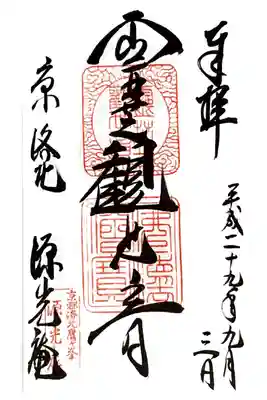 奉拝
平成二十九年九月
三日
霊芝観世音
京洛北 源光庵
京都洛北鷹ケ峯
源光庵